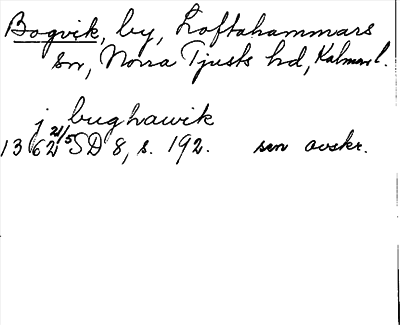 Bogvik, by, Loftahammars
sn, Norra Tjusts hd, Kalmar l.
j bughawik
1362 21/5 SD 8, s. 192. sen avskr.